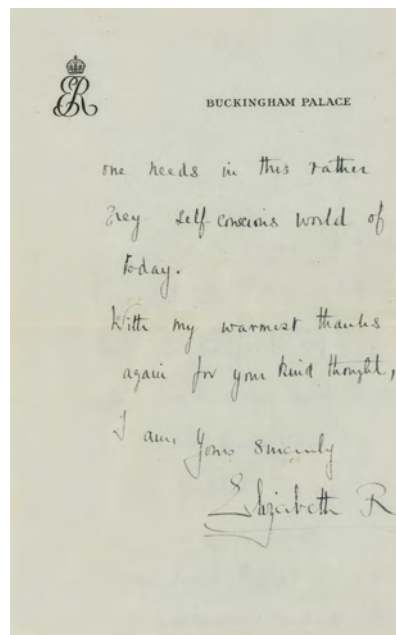 ER
BUCKINGHAM PALACE
one needs in this rather
grey self-conscious world of
today.
With my warmest thanks
again for your kind thought,
I am, Yours sincerely
Elizabeth R